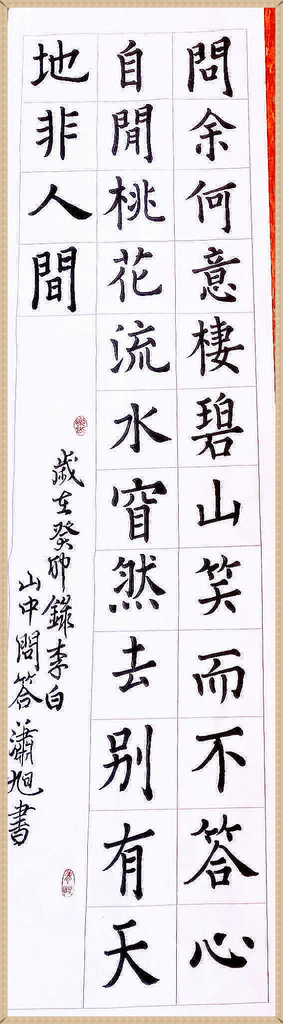 問余何意棲碧山笑而不答心
自閒桃花流水窅然去別有天
地非人間
歲在癸卯錄李白
山中問答瀟旭書